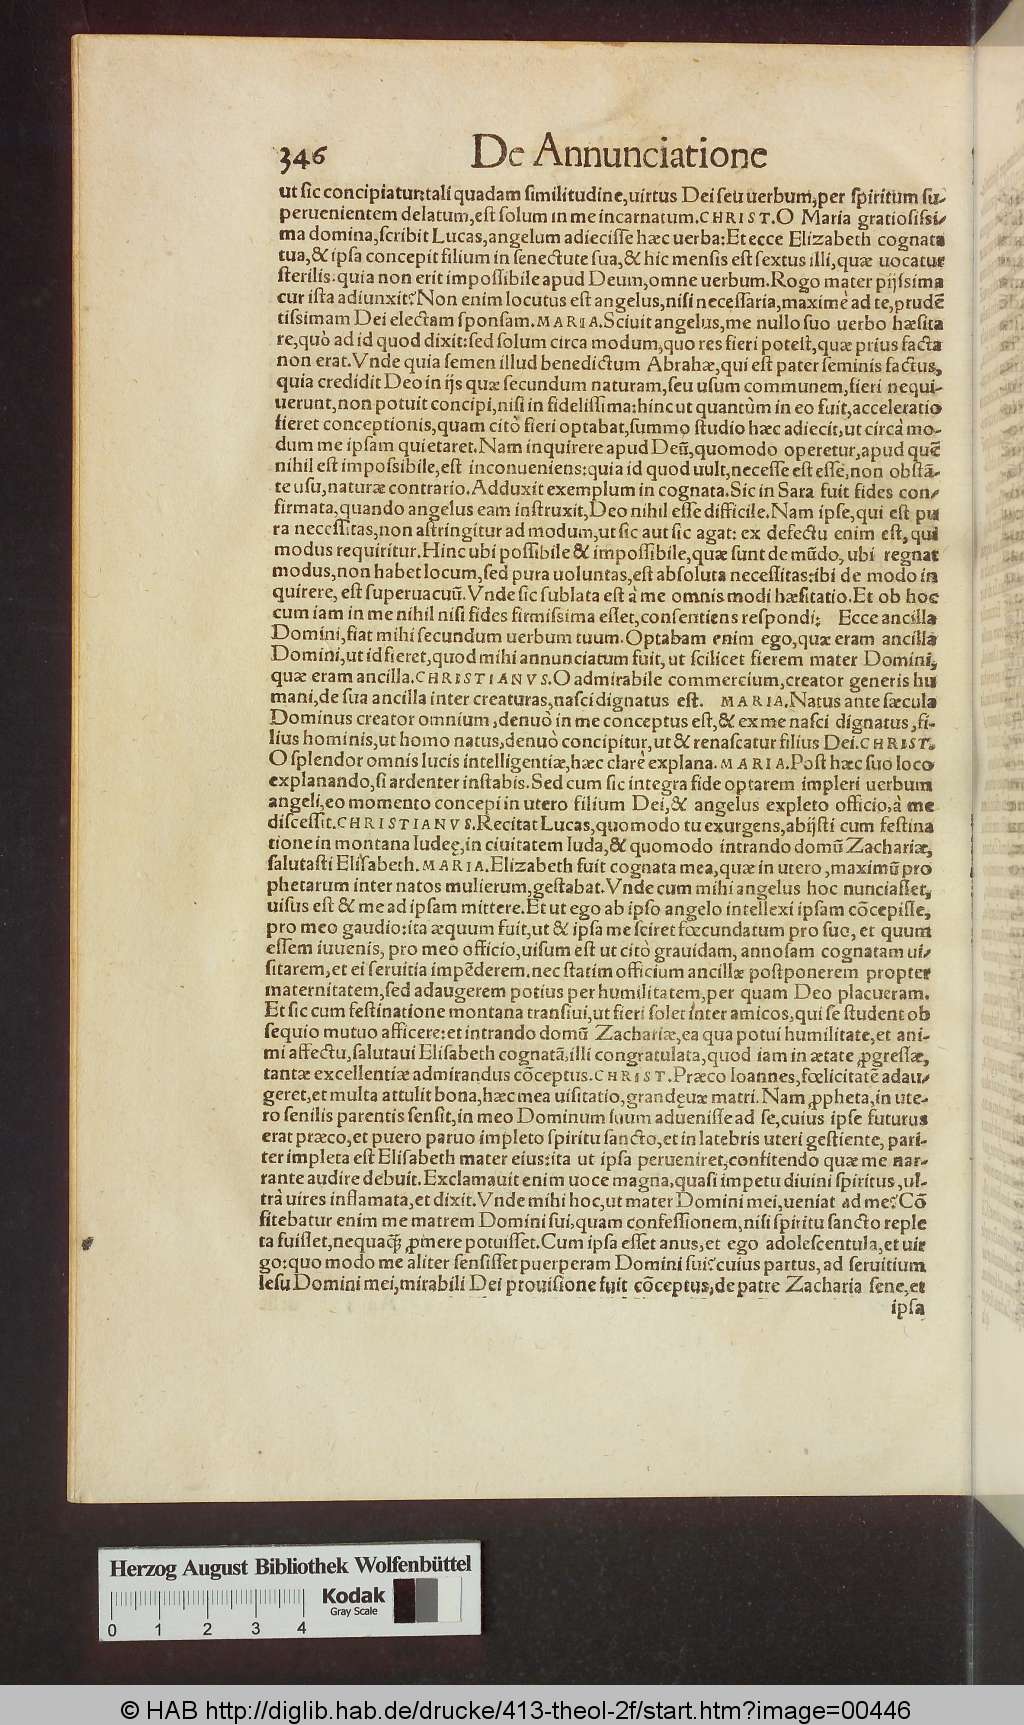 346 De Annunciatione
ut ſic concipiatur: tali quadam ſimilitudine, uirtus Dei ſeu uerbum, per ſpiritum ſu-
peruenientem delatum, eſt ſolum in me incarnatum. CHRIST. O Maria gratioſiſsi-
ma domina, ſcribit Lucas, angelum adieciſſe hæc uerba: Et ecce Elizabeth cognata
tua, & ipſa concepit filium in ſenectute ſua, & hic menſis eſt ſextus illi, quæ uocatur
ſterilis: quia non erit impoſſibile apud Deum, omne uerbum. Rogo mater pijſsima
cur iſta adiunxit? Non enim locutus eſt angelus, niſi neceſſaria, maximè ad te, prudẽ
tiſsimam Dei electam ſponſam. MARIA. Sciuit angelus, me nullo ſuo uerbo hæſita
re, quò ad id quod dixit: ſed ſolum circa modum, quo res fieri poteſt, quæ prius facta
non erat. Vnde quia ſemen illud benedictum Abrahæ, qui eſt pater ſeminis factus,
quia credidit Deo in ijs quæ ſecundum naturam, ſeu uſum communem, fieri nequi-
uerunt, non potuit concipi, niſi in fideliſſima: hinc ut quantùm in eo fuit, acceleratio
fieret conceptionis, quam citò fieri optabat, ſummo ſtudio hæc adiecit, ut circà mo-
dum me ipſam quietaret. Nam inquirere apud Deũ, quomodo operetur, apud quẽ
nihil eſt impoſsibile, eſt inconueniens: quia id quod uult, neceſſe eſt eſſe, non obſtã-
te uſu, naturæ contrario. Adduxit exemplum in cognata. Sic in Sara fuit fides con-
firmata, quando angelus eam inſtruxit, Deo nihil eſſe difficile. Nam ipſe, qui eſt pu
ra neceſſitas, non aſtringitur ad modum, ut ſic aut ſic agat: ex defectu enim eſt, qui
modus requiritur. Hinc ubi poſſibile & impoſſibile, quæ ſunt de mũdo, ubi regnat
modus, non habet locum, ſed pura uoluntas, eſt abſoluta neceſſitas: ibi de modo in
quirere, eſt ſuperuacuũ. Vnde ſic ſublata eſt à me omnis modi hæſitatio. Et ob hoc
cum iam in me nihil niſi fides firmiſsima eſſet, conſentiens reſpondi: Ecce ancilla
Domini, fiat mihi ſecundum uerbum tuum. Optabam enim ego, quæ eram ancilla
Domini, ut id fieret, quod mihi annunciatum fuit, ut ſcilicet fierem mater Domini,
quæ eram ancilla. CHRISTIANVS. O admirabile commercium, creator generis hu
mani, de ſua ancilla inter creaturas, naſci dignatus eſt. MARIA. Natus ante ſæcula
Dominus creator omnium, denuò in me conceptus eſt, & ex me naſci dignatus, fi-
lius hominis, ut homo natus, denuò concipitur, ut & renaſcatur filius Dei. CHRIST.
O ſplendor omnis lucis intelligentiæ, hæc clarè explana. MARIA. Poſt hæc ſuo loco
explanando, ſi ardenter inſtabis. Sed cum ſic integra fide optarem impleri uerbum
angeli, eo momento concepi in utero filium Dei, & angelus expleto officio, à me
diſceſſit. CHRISTIANVS. Recitat Lucas, quomodo tu exurgens, abijſti cum feſtina
tione in montana Iudeę, in ciuitatem Iuda, & quomodo intrando domũ Zachariæ,
ſalutaſti Eliſabeth. MARIA. Elizabeth fuit cognata mea, quæ in utero, maximũ pro
phetarum inter natos mulierum, geſtabat. Vnde cum mihi angelus hoc nunciaſſet,
uiſus eſt & me ad ipſam mittere. Et ut ego ab ipſo angelo intellexi ipſam cõcepiſſe,
pro meo gaudio: ita æquum fuit, ut & ipſa me ſciret fœcundatum pro ſuo, et quum
eſſem iuuenis, pro meo officio, uiſum eſt ut citò grauidam, annoſam cognatam ui-
ſitarem, et ei ſeruitia impẽderem. nec ſtatim officium ancillæ poſtponerem propter
maternitatem, ſed adaugerem potius per humilitatem, per quam Deo placueram.
Et ſic cum feſtinatione montana tranſiui, ut fieri ſolet inter amicos, qui ſe ſtudent ob
ſequio mutuo afficere: et intrando domũ Zachariæ, ea qua potui humilitate, et ani-
mi affectu, ſalutaui Eliſabeth cognatã, illi congratulata, quod iam in ætate ꝓgreſſæ,
tantæ excellentiæ admirandus cõceptus. CHRIST. Præco Ioannes, fœlicitatẽ adau-
geret, et multa attulit bona, hæc mea uiſitatio, grandęuæ matri. Nam ꝓpheta, in ute-
ro ſenilis parentis ſenſit, in meo Dominum ſuum adueniſſe ad ſe, cuius ipſe futurus
erat præco, et puero paruo impleto ſpiritu ſancto, et in latebris uteri geſtiente, pari-
ter impleta eſt Eliſabeth mater eius: ita ut ipſa perueniret, confitendo quæ me nar-
rante audire debuit. Exclamauit enim uoce magna, quaſi impetu diuini ſpiritus, ul-
trà uires inflamata, et dixit. Vnde mihi hoc, ut mater Domini mei, ueniat ad me? Cõ
fitebatur enim me matrem Domini ſui, quam confeſſionem, niſi ſpiritu ſancto reple
ta fuiſſet, nequaꝗ̃ ꝓmere potuiſſet. Cum ipſa eſſet anus, et ego adoleſcentula, et uir
go: quo modo me aliter ſenſiſſet puerperam Domini ſui? cuius partus, ad ſeruitium
Ieſu Domini mei, mirabili Dei prouiſione fuit cõceptus, de patre Zacharia ſene, et
ipſa
Herzog August Bibliothek Wolfenbüttel
Kodak
Gray Scale
0 1 2 3 4
© HAB http://diglib.hab.de/drucke/413-theol-2f/start.htm?image=00446